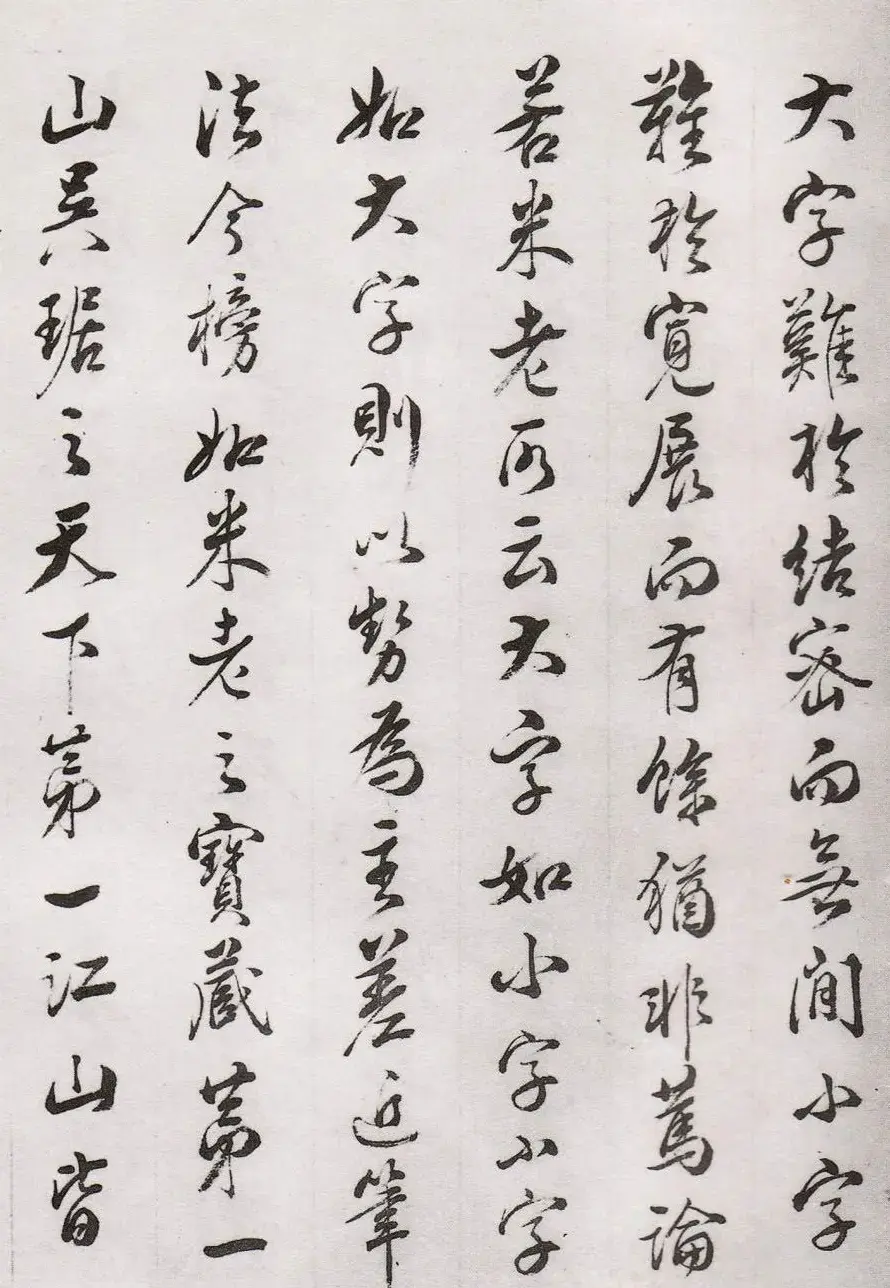 大字難於結密而無間小字
難於寬展而有餘猶非篤論
若米老所云大字如小字小字
如大字則以勢為主差近筆
法今榜如米老之寶藏第一
山吳琚之天下第一江山皆